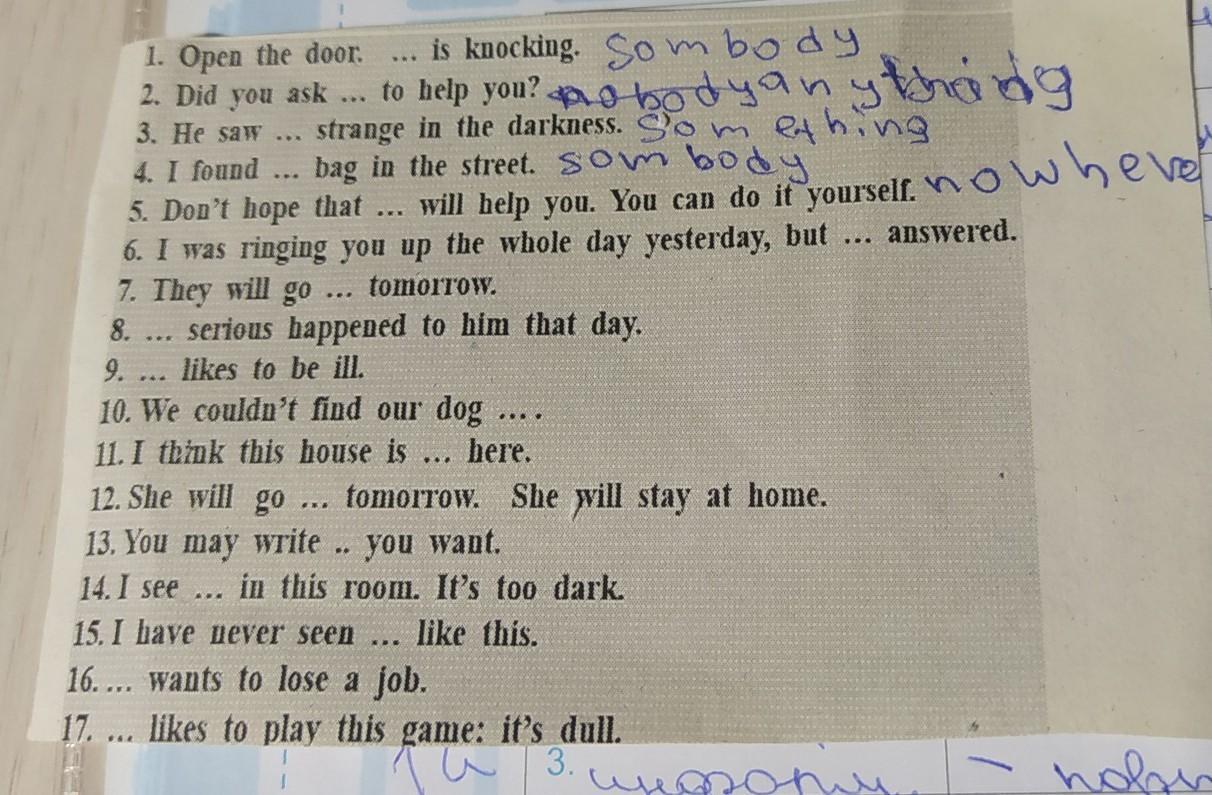 1. Open the door. ... is knocking. Sombody
2. Did you ask ... to help you? nobody anything
3. He saw ... strange in the darkness. Something
4. I found ... bag in the street. sombody
5. Don't hope that ... will help you. You can do it yourself. nowhere
6. I was ringing you up the whole day yesterday, but ... answered.
7. They will go ... tomorrow.
8. ... serious happened to him that day.
9. ... likes to be ill.
10. We couldn't find our dog ....
11. I think this house is ... here.
12. She will go ... tomorrow. She will stay at home.
13. You may write .. you want.
14. I see ... in this room. It's too dark.
15. I have never seen ... like this.
16. ... wants to lose a job.
17. ... likes to play this game: it's dull.
3.